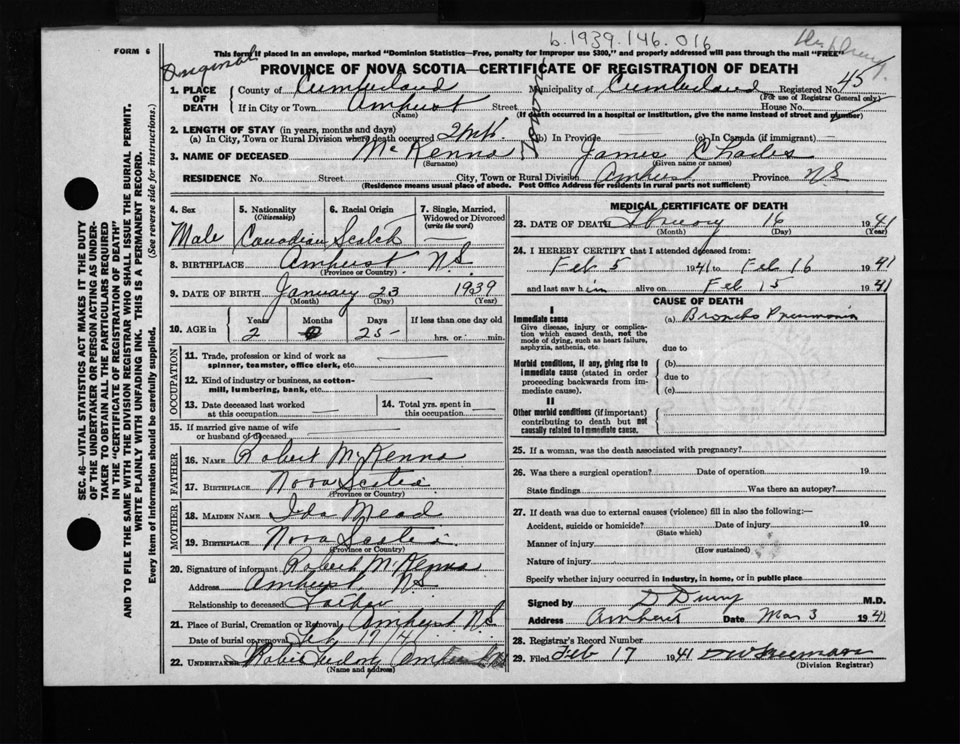 b.1939.146.016
FORM 6
This form if placed in an envelope, marked "Dominion Statistics—Free, penalty for improper use $300," and properly addressed will pass through the mail "FREE"
Original
PROVINCE OF NOVA SCOTIA—CERTIFICATE OF REGISTRATION OF DEATH
1. PLACE OF DEATH County of Cumberland Municipality of Cumberland Registered No. 45
(For use of Registrar General only)
If in City or Town Amherst Street House No.
(Name) (If death occurred in a hospital or institution, give the name instead of street and number)
2. LENGTH OF STAY (in years, months and days)
(a) In City, Town or Rural Division where death occurred (b) In Province (c) In Canada (if immigrant)
3. NAME OF DECEASED McKenna James Charles
(Surname) (Given name or names)
RESIDENCE No. Street City, Town or Rural Division Amherst Province NS
(Residence means usual place of abode. Post Office Address for residents in rural parts not sufficient)
SEC. 46—VITAL STATISTICS ACT MAKES IT THE DUTY
OF THE UNDERTAKER OR PERSON ACTING AS UNDER-
TAKER TO OBTAIN ALL THE PARTICULARS REQUIRED
IN THE "CERTIFICATE OF REGISTRATION OF DEATH"
AND TO FILE THE SAME WITH THE DIVISION REGISTRAR WHO SHALL ISSUE THE BURIAL PERMIT.
WRITE PLAINLY WITH UNFADING INK. THIS IS A PERMANENT RECORD.
Every item of information should be carefully supplied. (See reverse side for instructions.)
4. Sex 5. Nationality (Citizenship) 6. Racial Origin 7. Single, Married, Widowed or Divorced (write the word)
Male Canadian Scotch —
8. BIRTHPLACE Amherst N.S.
(Province or Country)
9. DATE OF BIRTH January 23 1939
(Month) (Day) (Year)
10. AGE in Years Months Days If less than one day old
2 0 25 hrs. or min.
OCCUPATION
11. Trade, profession or kind of work as
spinner, teamster, office clerk, etc. —
12. Kind of industry or business, as cotton-
mill, lumbering, bank, etc. —
13. Date deceased last worked at this occupation — 14. Total yrs. spent in this occupation —
15. If married give name of wife
or husband of deceased
FATHER
16. NAME Robert McKenna
17. BIRTHPLACE Nova Scotia
(Province or Country)
MOTHER
18. MAIDEN NAME Ida Mead
19. BIRTHPLACE Nova Scotia
(Province or Country)
20. Signature of informant Robert McKenna
Address Amherst, N.S.
Relationship to deceased Father
21. Place of Burial, Cremation or Removal Amherst N.S.
Date of burial or removal Feb 17/41
22. UNDERTAKER
(Name and address)
MEDICAL CERTIFICATE OF DEATH
23. DATE OF DEATH February 16 1941
(Month) (Day) (Year)
24. I HEREBY CERTIFY that I attended deceased from:
Feb 5 1941 to Feb 16 1941
and last saw him alive on Feb 15 1941
CAUSE OF DEATH
I
Immediate cause (a) Broncho Pneumonia
Give disease, injury or complica-
tion which caused death, not the
mode of dying, such as heart failure,
asphyxia, asthenia, etc. due to
Morbid conditions, if any, giving rise to (b)
immediate cause (stated in order due to
proceeding backwards from im-
mediate cause). (c)
II
Other morbid conditions (if important)
contributing to death but not
causally related to immediate cause.
25. If a woman, was the death associated with pregnancy?
26. Was there a surgical operation? Date of operation 19
State findings Was there an autopsy?
27. If death was due to external causes (violence) fill in also the following:—
Accident, suicide or homicide? Date of injury 19
(State which)
Manner of injury
(How sustained)
Nature of injury
Specify whether injury occurred in industry, in home, or in public place
Signed by M.D.
Address Amherst Date Mar 3 1941
28. Registrar's Record Number
29. Filed Feb 17 1941 DW Freeman
(Division Registrar)